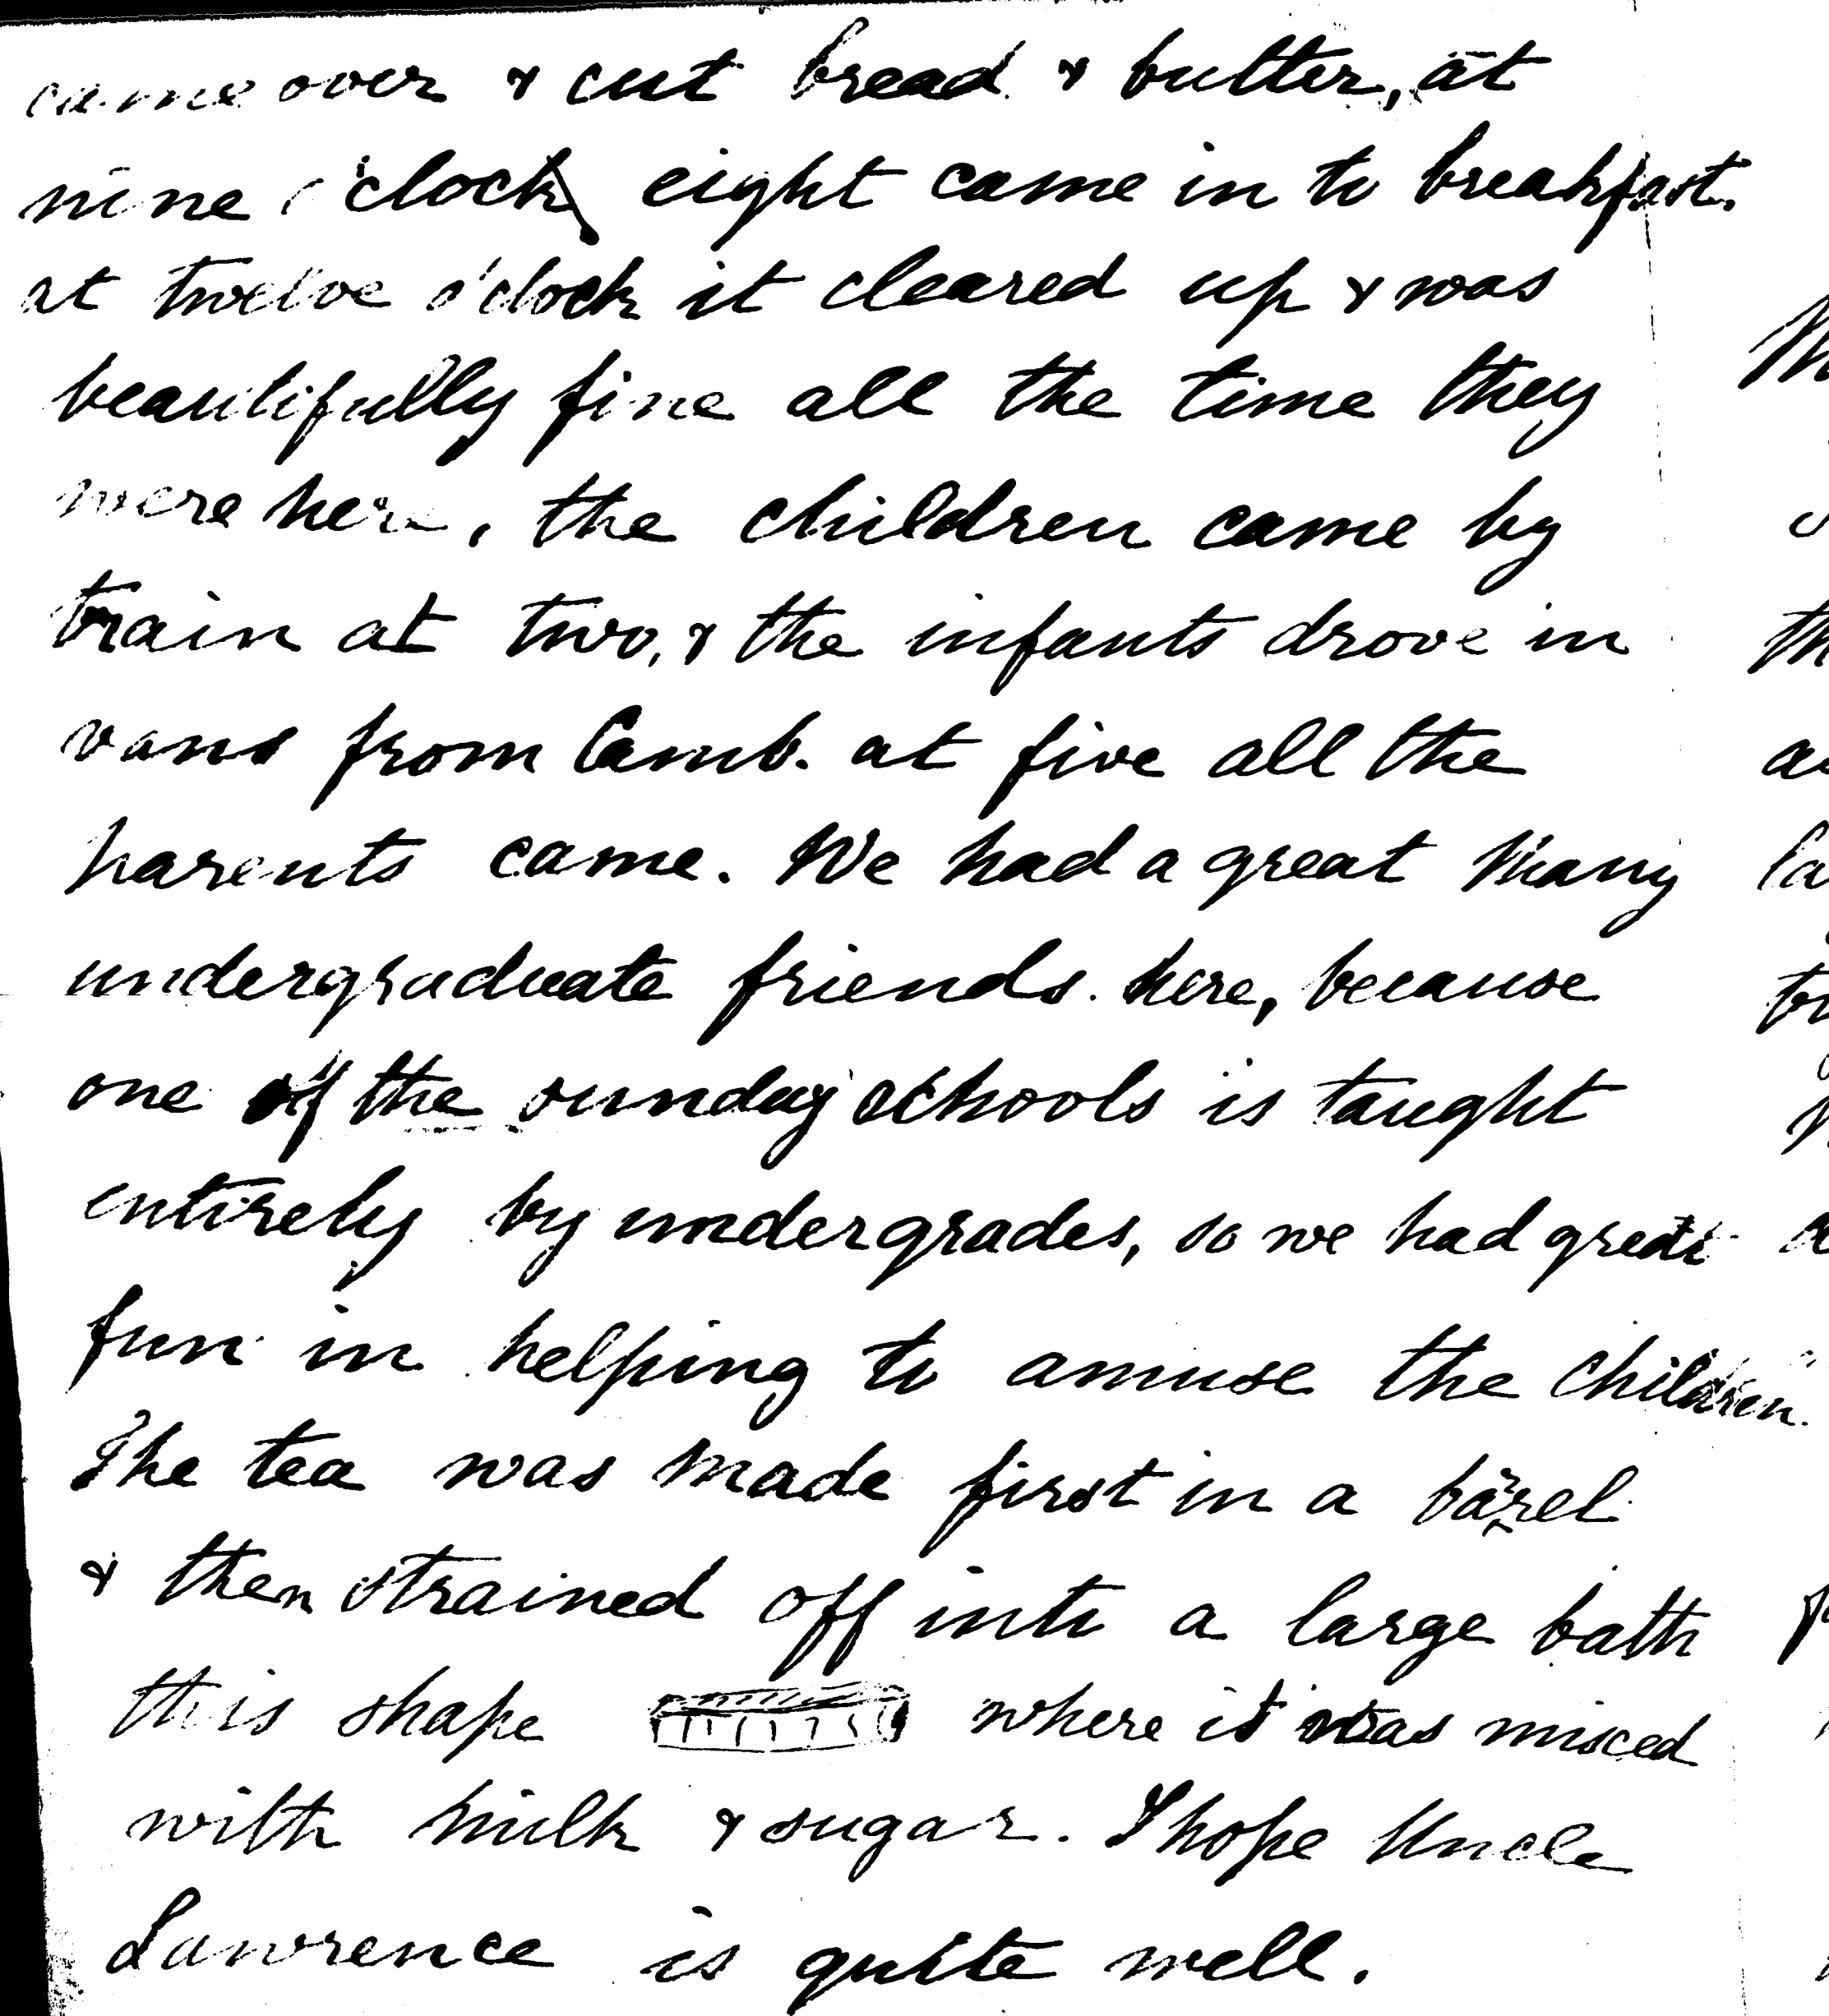 came over & cut bread & butter, at
nine o'clock eight came in to breakfast.
at twelve o'clock it cleared up & was
beautifully fine all the time they
were here, the children came by
train at two, & the infants drove in
vans from Camb. at five all the
parents came. We had a great many
undergraduate friends here, because
one of the sunday schools is taught
entirely by undergrades, so we had great
fun in helping to amuse the children.
The tea was made first in a barrel
& then strained off into a large bath
this shape where it was misced
with milk & sugar. I hope Uncle
Lawrence is quite well.